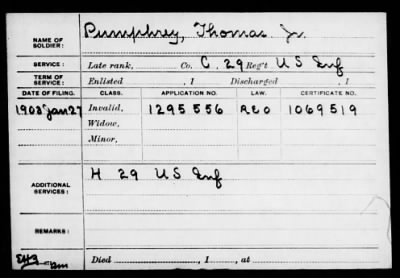 NAME OF SOLDIER: Pumphrey, Thomas Jr.
SERVICE: Late rank, Co. C. 29 Reg't U S Inf
TERM OF SERVICE: Enlisted , 1 Discharged , 1
DATE OF FILING. CLASS. APPLICATION NO. LAW. CERTIFICATE NO.
Jan 27 Invalid, 1295556 1069519
Widow,
Minor,
ADDITIONAL SERVICES: H 29 U S Inf
REMARKS:
Died , 1 , at